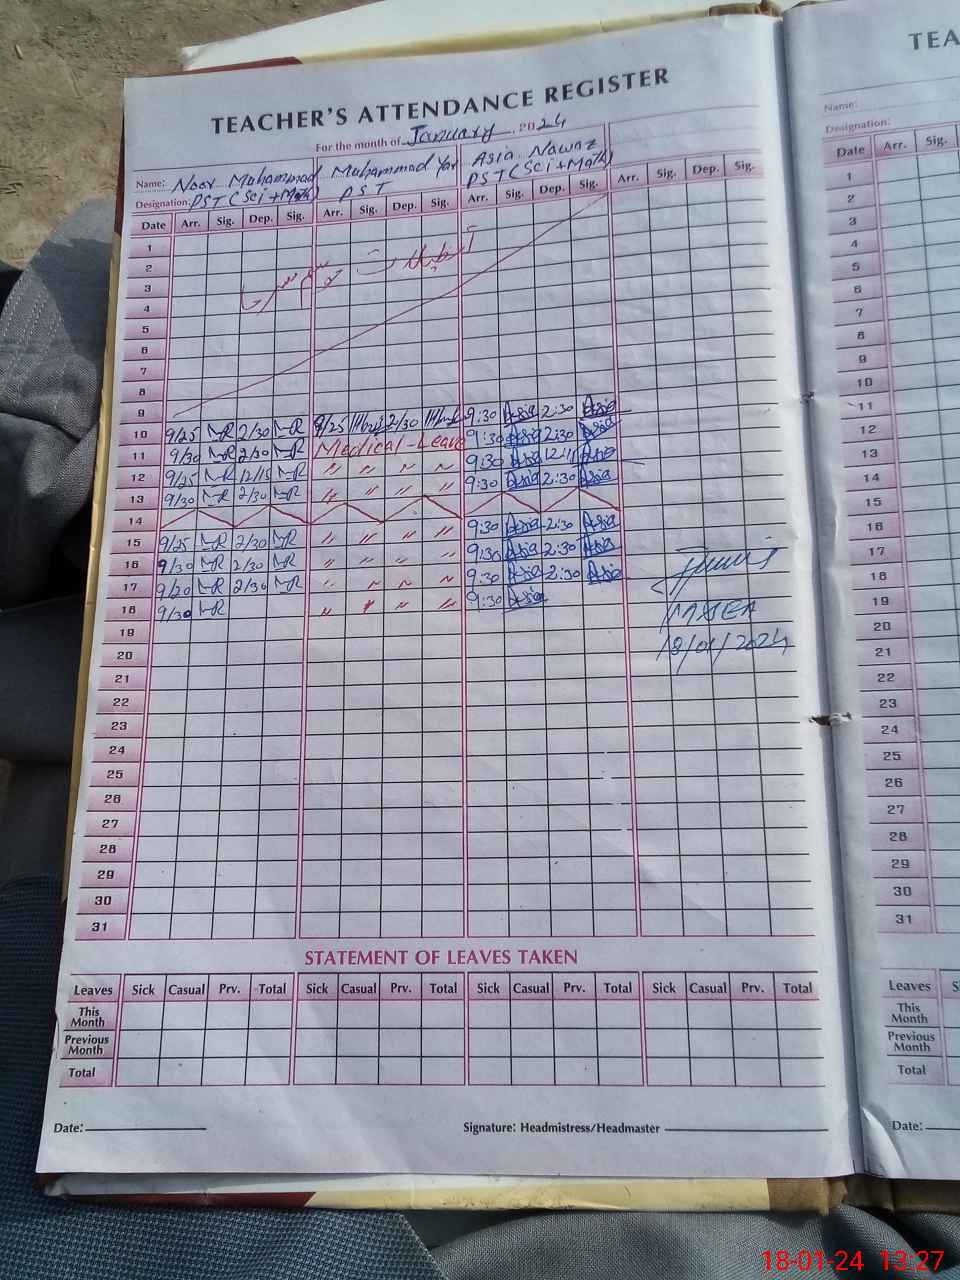 TEACHER'S ATTENDANCE REGISTER
For the month of January 2024
Name: Noor Muhammad Muhammad Yar Asia Nawaz
Designation: PST (Sci + Math) PST PST (Sci + Math)
Date Arr. Sig. Dep. Sig. Arr. Sig. Dep. Sig. Arr. Sig. Dep. Sig. Arr. Sig. Dep. Sig.
1
2
3
4
5
6
7
8
9
10 9/25 2/30 9/25 2/30 9:30 Asia 2:30 Asia
11 9/30 2/30 Medical Leave 9:30 Asia 2:30 Asia
12 9/25 12/15 " " " " 9:30 Asia Asia
13 9/30 2/30 " " " " 9:30 Asia 2:30 Asia
14
15 9/25 2/30 " " " " 9:30 Asia 2:30 Asia
16 9/30 2/30 " " " " 9:30 Asia 2:30 Asia
17 9/20 2/30 " " " " 9:30 Asia 2:30 Asia
18 9/30 " " " " 9:30 Asia
MSEA
18/01/2024
19
20
21
22
23
24
25
26
27
28
29
30
31
STATEMENT OF LEAVES TAKEN
Leaves Sick Casual Prv. Total Sick Casual Prv. Total Sick Casual Prv. Total Sick Casual Prv. Total
This Month
Previous Month
Total
Date: Signature: Headmistress/Headmaster
TEA
Name:
Designation:
Date Arr. Sig.
1
2
3
4
5
6
7
8
9
10
11
12
13
14
15
16
17
18
19
20
21
22
23
24
25
26
27
28
29
30
31
Leaves S
This Month
Previous Month
Total
Date:
18-01-24 13:27